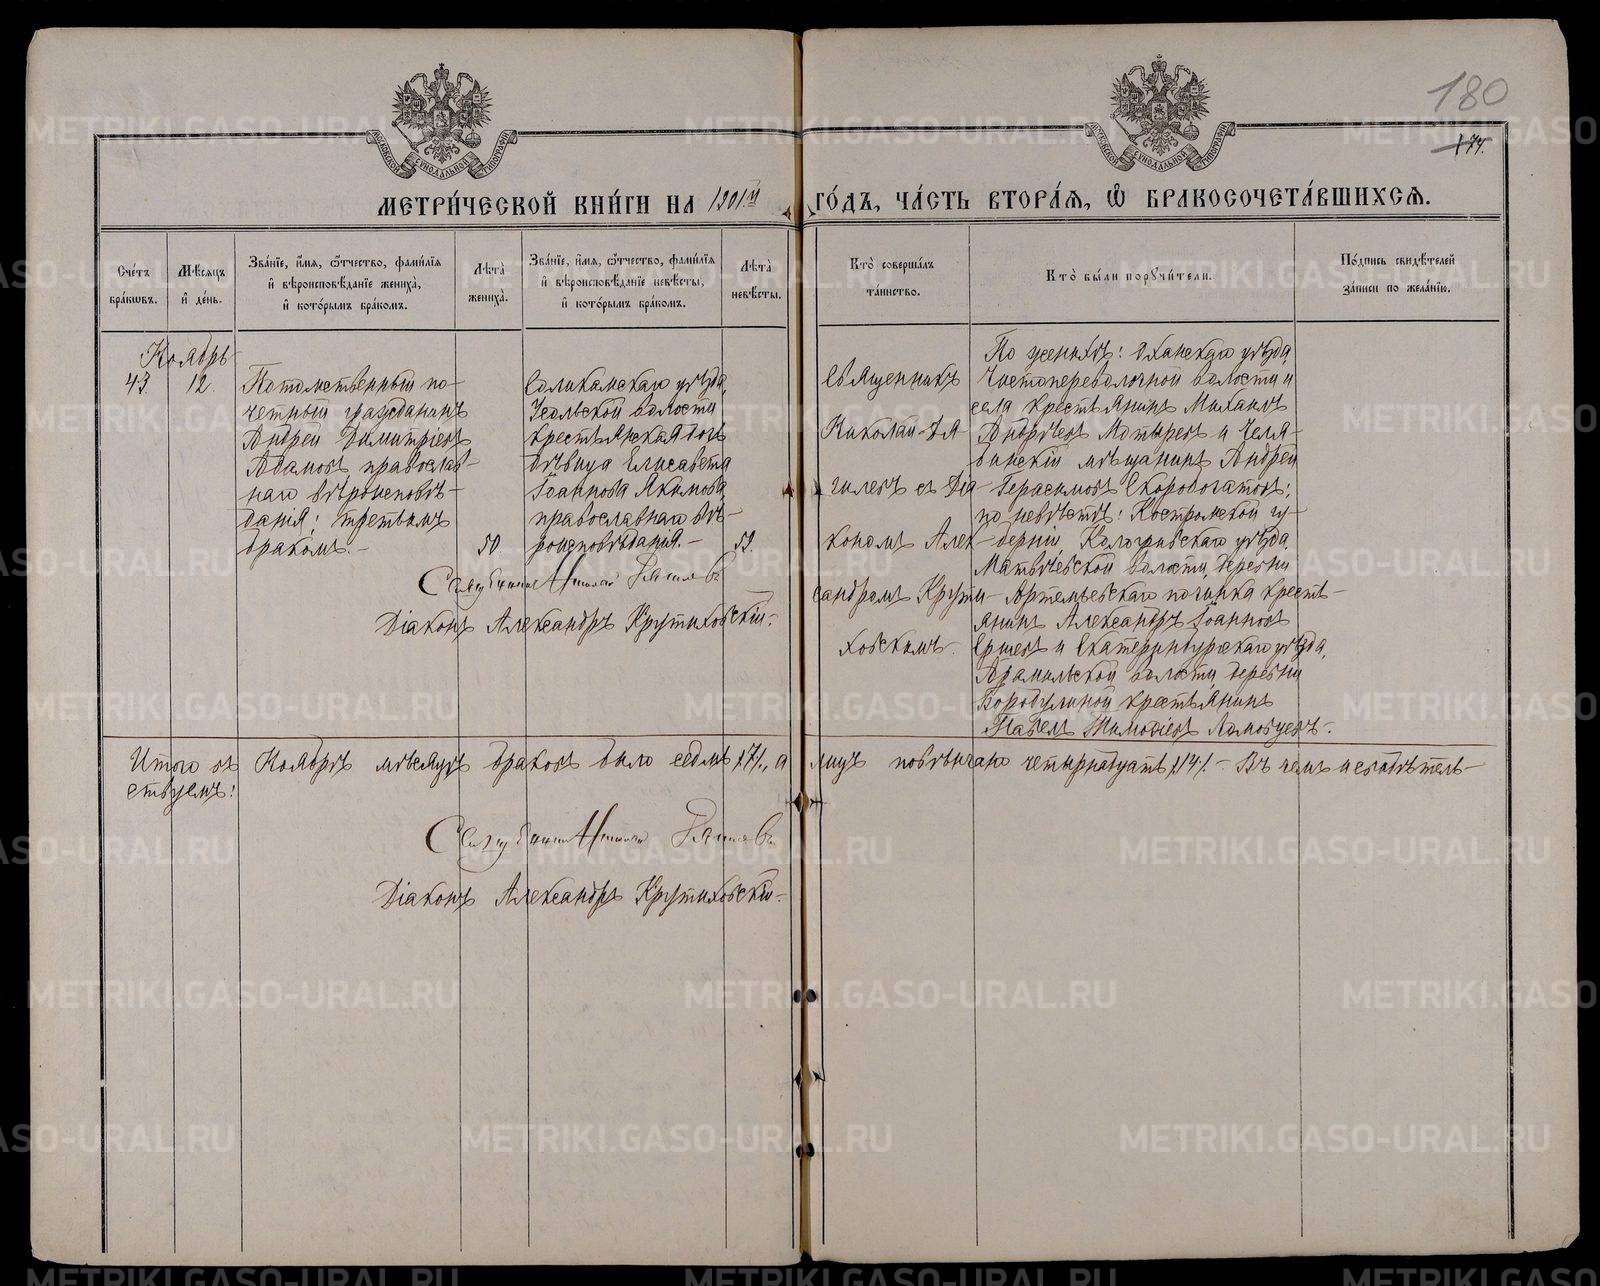 180
174.
МОСКОВСКОЙ СѴНОДАЛЬНОЙ ТИПОГРАФІИ
МОСКОВСКОЙ СѴНОДАЛЬНОЙ ТИПОГРАФІИ
МЕТРИ́ЧЕСКОЙ КНИ́ГИ НА 1901й ГО́ДЪ, ЧА́СТЬ ВТОРА́Я, Ѡ҆ БРАКОСОЧЕТА́ВШИХСЯ.
Сче́тъ бра́кѡвъ.
Мѣ́сяцъ и҆ де́нь.
Зва́нїе, и҆́мя, ѻ҆́тчество, фами́лїя и҆ вѣроисповѣ́данїе жениха̀, и҆ кото́рымъ бра́комъ.
Лѣта̀ жениха̀.
Зва́нїе, и҆́мя, ѻ҆́тчество, фами́лїя и҆ вѣроисповѣ́данїе невѣ́сты, и҆ кото́рымъ бра́комъ.
Лѣта̀ невѣ́сты.
Кто̀ соверша́лъ та́инство.
Кто̀ бы́ли поручи́тели.
По́дпись свидѣ́телей за́писи по жела́нїю.
Ноябрь
43
12.
Потомственный по-
четный гражданинъ
Андрей Димитріевъ
Адамовъ, православ-
наго вѣроисповѣ-
данія; третьимъ
бракомъ.-
50.
Соликамскаго уѣзда,
Усольской волости
крестьянская дочь
дѣвица Елисавета
Іоаннова Якимова,
православнаго вѣ-
роисповѣданія.-
Священникъ
Николай Гя
гилевъ съ Діа-
кономъ Алек-
сандромъ Крути-
ховскимъ.
По женихѣ: Оханскаго уѣзда,
Частопереволочной волости и
села крестьянинъ Михаилъ
Андреевъ и Челя-
бинскій мѣщанинъ Андрей
Герасимовъ Скоробогатовъ;
по невѣстѣ: Костромской гу-
берніи Кологривскаго уѣзда,
Матвѣевской волости, деревни
Артемьевскаго починка кресть-
янинъ Александръ Іоанновъ
Ершовъ и Екатеринбургскаго уѣзда,
Арамильской волости, деревни
Бородулиной крестьянинъ
Павелъ Тимоѳіевъ Ломовцевъ.
Священникъ Николай Гягилевъ
Діаконъ Александръ Крутиховскій.
Итого въ Ноябрѣ мѣсяцѣ браковъ было седмь /7/., а лицъ повѣнчано четырнадцать /14/. - Въ чемъ и свидѣтель-
ствуемъ:
Священникъ Николай Гягилевъ
Діаконъ Александръ Крутиховскій.
METRIKI.GASO-URAL.RU